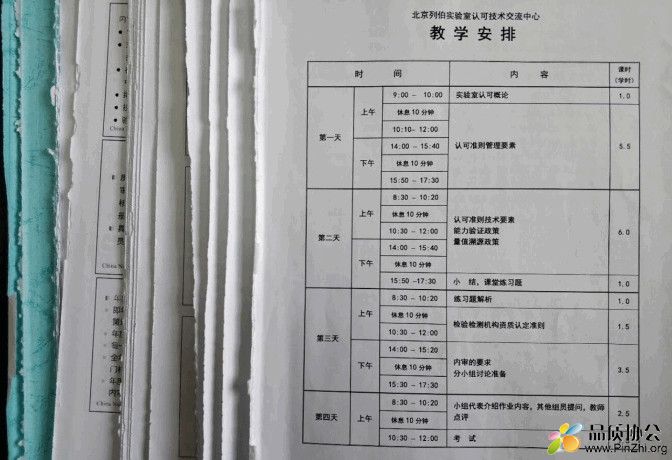 北京列伯实验室认可技术交流中心
教 学 安 排
时 间 内 容 课时
(学时)
第一天 上午 9:00 — 10:00 实验室认可概论 1.0
休息 10 分钟
10:10— 12:00
下午 14:00 — 15:40 认可准则管理要素 5.5
休息 10 分钟
15:50 — 17:30
第二天 上午 8:30 — 10:20
休息 10 分钟
10:30 — 12:00
下午 14:00 — 15:40
休息 10 分钟
认可准则技术要素
能力验证政策
量值溯源政策
6.0
15:50 —17:30 小 结,课堂练习题 1.0
第三天 上午 8:30 — 10:20 练习题解析 1.0
休息 10 分钟
10:30 — 12:00
检验检测机构资质认定准则 1.5
下午 14:00 — 15:20
休息 10 分钟
15:30 — 17:30
内审的要求
分小组讨论准备
3.5
第四天 上午 8:30 — 10:20
休息 10 分钟
小组代表介绍作业内容,其他组员提问,教师
点评
2.5
10:30 — 12:00 考 试
品质协公
www.PinZhi.org
China Na
China Na